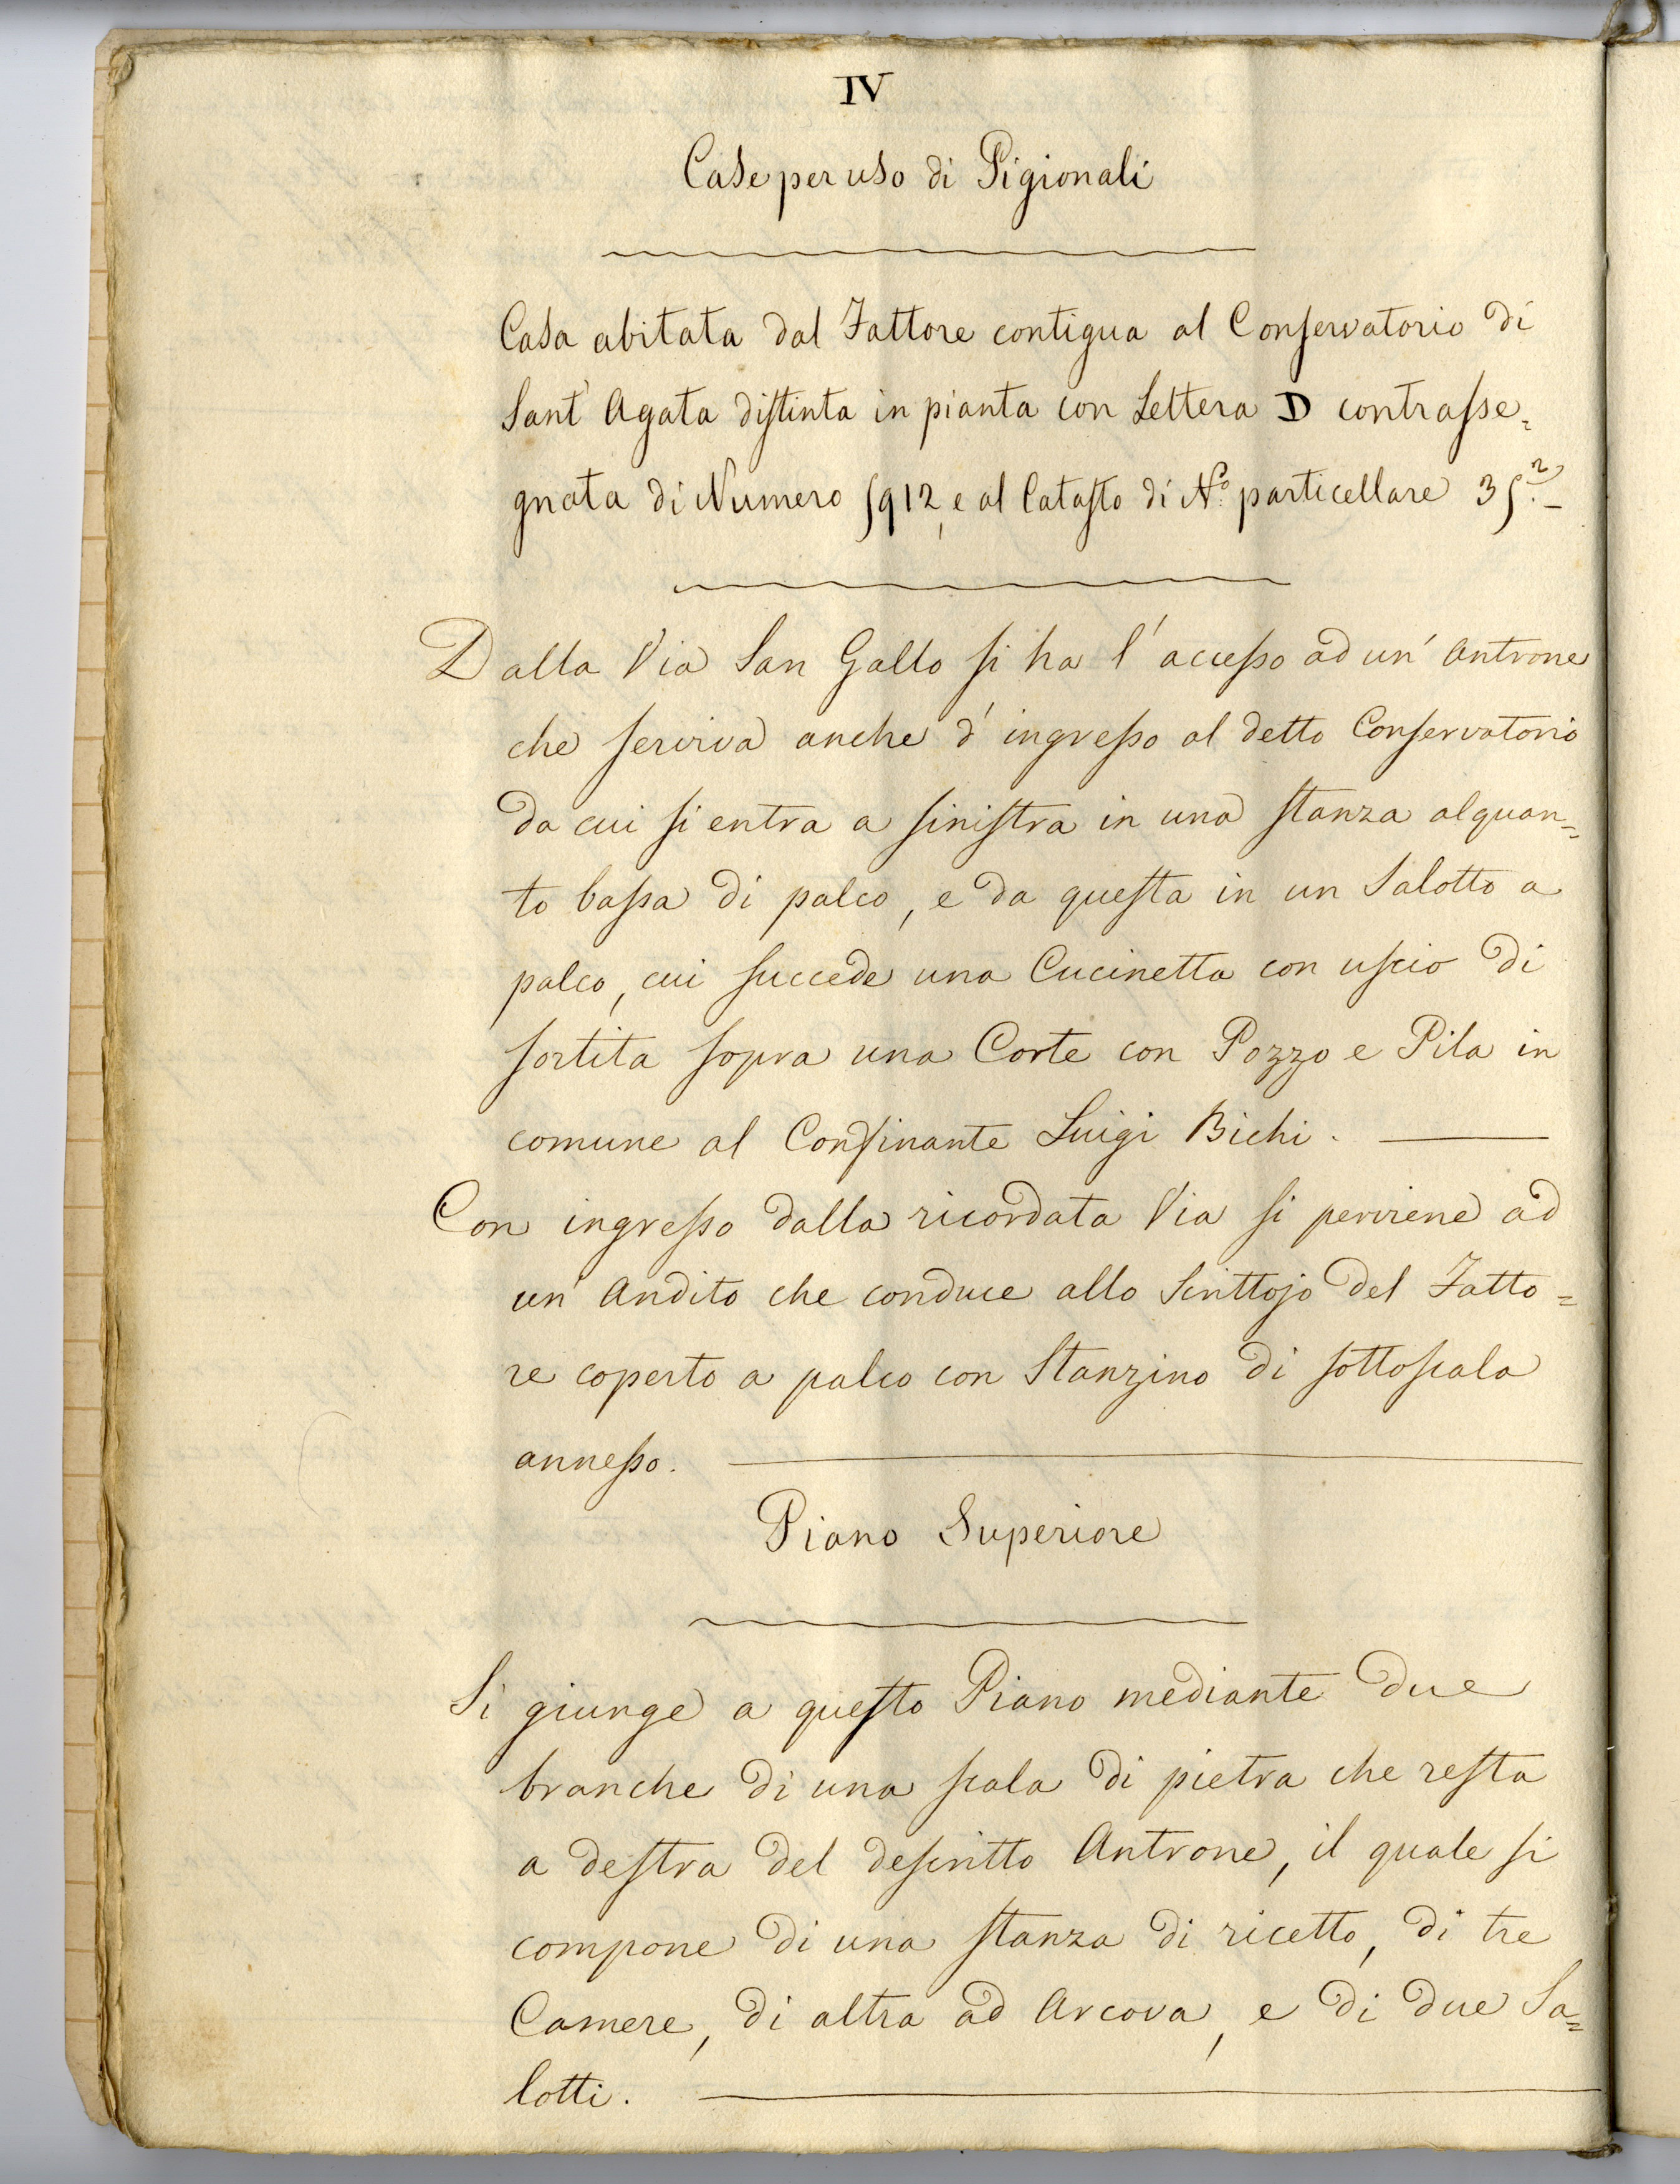 IV
Case per uso di Pigionali
Casa abitata dal Fattore contigua al Conservatorio di
Sant' Agata distinta in pianta con Lettera D contrasse=
gnata di Numero 5912, e al Catasto di N.° particellare 35.2
Dalla Via San Gallo si ha l' accesso ad un' Antrone
che serviva anche d' ingresso al detto Conservatorio
da cui si entra a sinistra in una stanza alquan=
to bassa di palco, e da questa in un Salotto a
palco, cui succede una Cucinetta con uscio di
sortita sopra una Corte con Pozzo e Pila in
comune al Confinante Luigi Bichi.
Con ingresso dalla ricordata Via si perviene ad
un' Andito che conduce allo Scrittojo del Fatto=
re coperto a palco con Stanzino di sottoscala
annesso.
Piano Superiore
Si giunge a questo Piano mediante due
branche di una scala di pietra che resta
a destra del descritto Antrone, il quale si
compone di una stanza di ricetto, di tre
Camere, di altra ad Arcova, e di due Sa=
lotti.